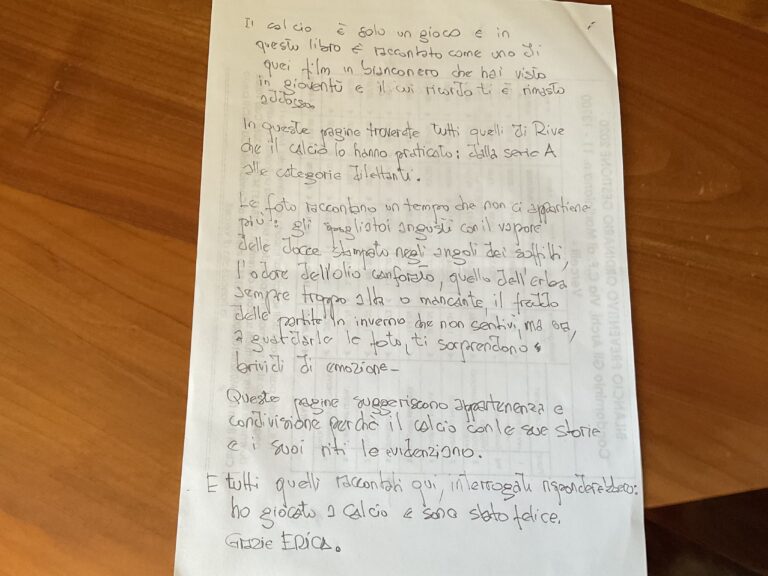 Il calcio è solo un gioco e in
questo libro è raccontato come uno di
quei film in bianconero che hai visto
in gioventù e il cui ricordo ti è rimasto
addosso.
In queste pagine troverete tutti quelli di Rive
che il calcio lo hanno praticato: dalla serie A
alle categorie dilettanti.
Le foto raccontano un tempo che non ci appartiene
più: gli spogliatoi angusti con il vapore
delle docce stampato negli angoli dei soffitti,
l'odore dell'olio canforato, quello dell'erba
sempre troppo alta o mancante, il freddo
delle partite in inverno che non sentivi, ma ora,
a guardarle le foto, ti sorprendono
brividi di emozione-
Queste pagine suggeriscono appartenenza e
condivisione perché il calcio con le sue storie
e i suoi riti le evidenziano.
E tutti quelli raccontati qui, interrogati risponderebbero:
ho giocato a calcio e sono stato felice.
Grazie ERICA.